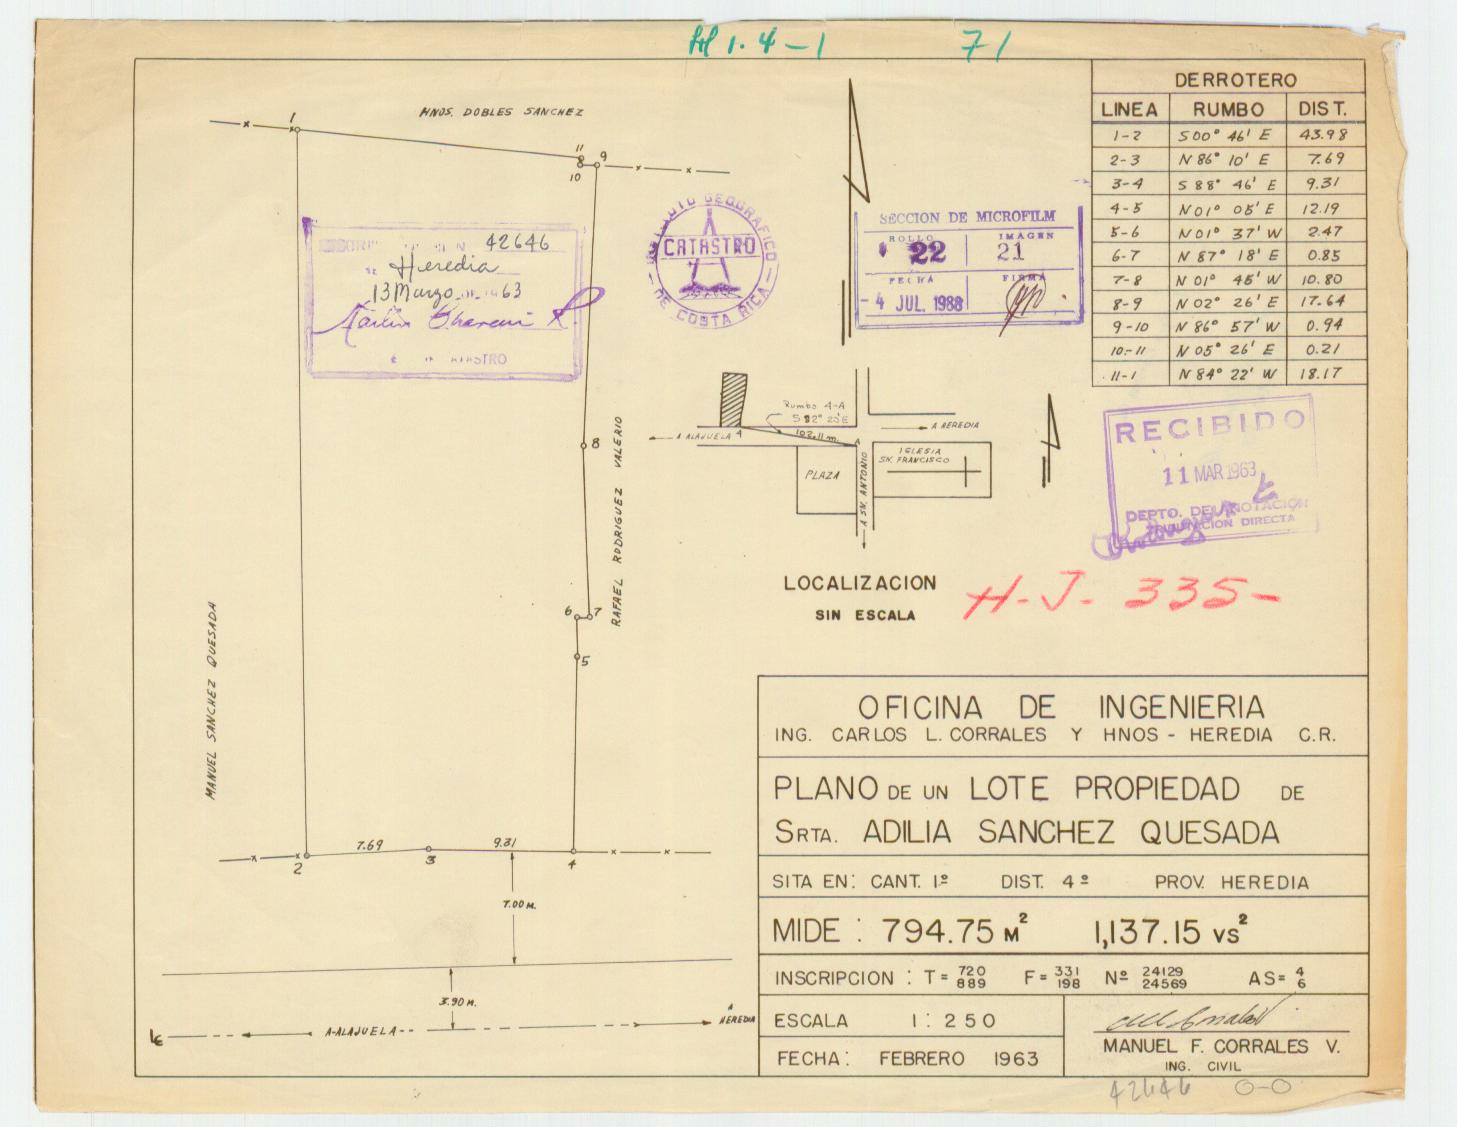 H 1.4-1 71
DERROTERO
LINEA RUMBO DIST.
1-2 S 00° 46' E 43.98
2-3 N 86° 10' E 7.69
3-4 S 88° 46' E 9.31
4-5 N 01° 05' E 12.19
5-6 N 01° 37' W 2.47
6-7 N 87° 18' E 0.85
7-8 N 01° 45' W 10.80
8-9 N 02° 26' E 17.64
9-10 N 86° 57' W 0.94
10-11 N 05° 26' E 0.21
11-1 N 84° 22' W 18.17
HNOS. DOBLES SANCHEZ
1
11
9
10
42646
Heredia
13 Marzo DE 1963
CATASTRO
INSTITUTO GEOGRAFICO
CATASTRO
DE COSTA RICA
SECCION DE MICROFILM
ROLLO IMAGEN
22 21
FECHA FIRMA
- 4 JUL. 1988
Rumbo 4-A
S 82° 25' E
102.11 m.
A ALAJUELA 4
A
A HEREDIA
PLAZA
A SN. ANTONIO
IGLESIA
SN. FRANCISCO
LOCALIZACION
SIN ESCALA
RECIBIDO
11 MAR 1963
DEPTO. DE ANOTACION
DIRECTA
H-J-335-
8
RAFAEL RODRIGUEZ VALERIO
6 7
5
MANUEL SANCHEZ QUESADA
7.69 9.31
2 3 4
7.00 M.
3.90 M.
A-ALAJUELA--
A
HEREDIA
OFICINA DE INGENIERIA
ING. CARLOS L. CORRALES Y HNOS - HEREDIA C.R.
PLANO DE UN LOTE PROPIEDAD DE
SRTA. ADILIA SANCHEZ QUESADA
SITA EN: CANT. 1º DIST. 4º PROV. HEREDIA
MIDE: 794.75 M² 1,137.15 VS²
INSCRIPCION: T= 720 F= 331 Nº 24129 AS= 4
889 198 24569 6
ESCALA 1:250
FECHA: FEBRERO 1963
MANUEL F. CORRALES V.
ING. CIVIL
42646 0-0